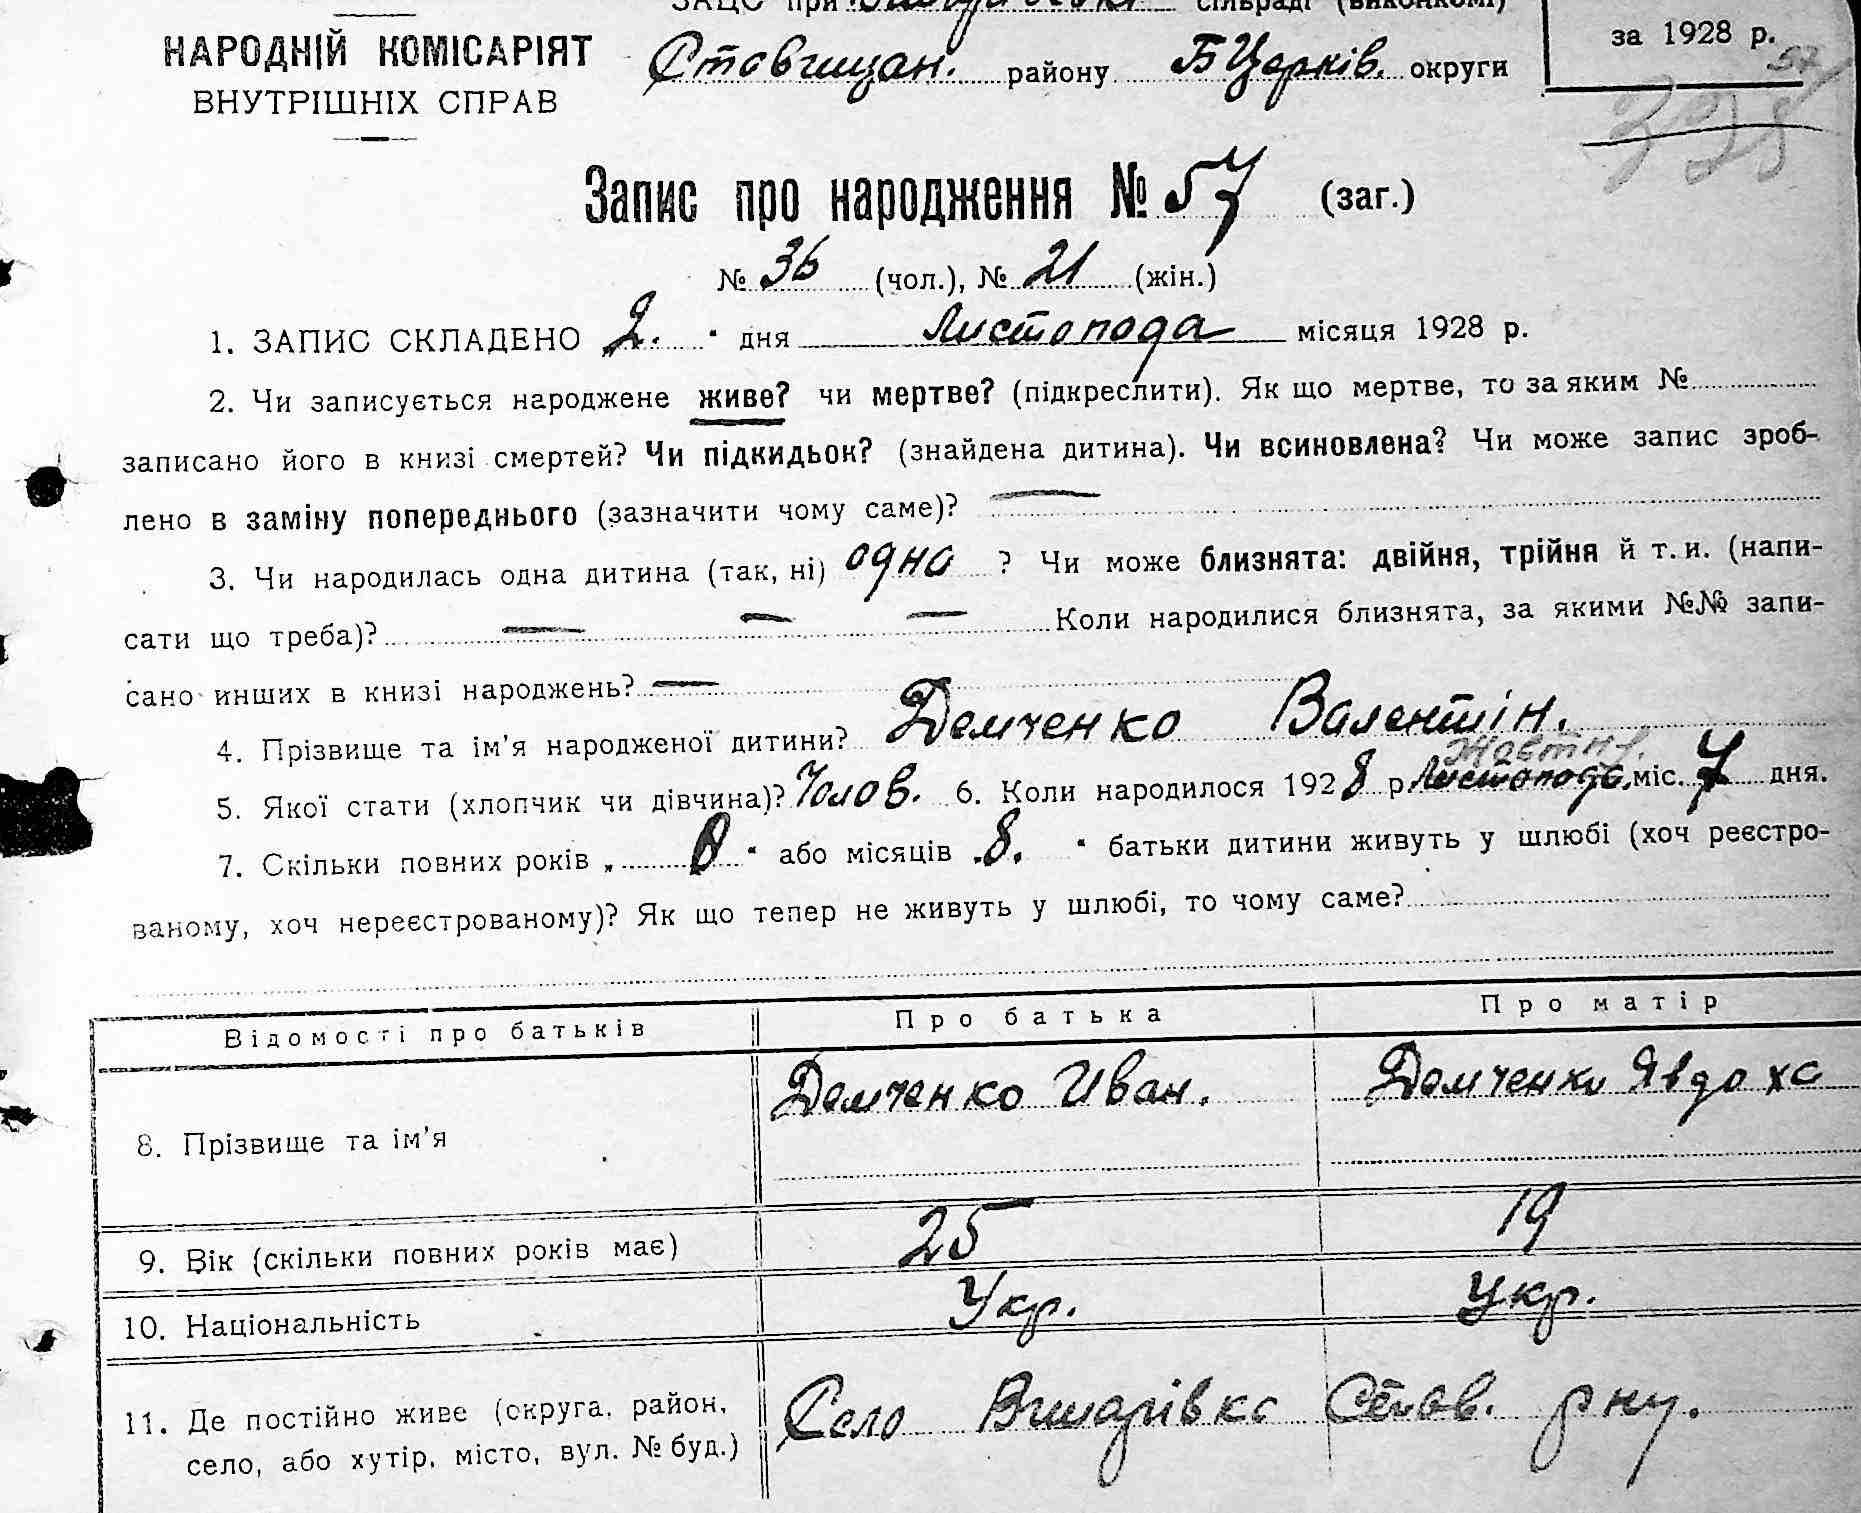 ЗАЦС при сільраді (виконкомі)
НАРОДНІЙ КОМІСАРІЯТ
ВНУТРІШНІХ СПРАВ
Ставищан. району Б Церків. округи
за 1928 р.
57
328
Запис про народження № 57 (заг.)
№ 36 (чол.), № 21 (жін.)
1. ЗАПИС СКЛАДЕНО „2." дня Листопада місяця 1928 р.
2. Чи записується народжене живе? чи мертве? (підкреслити). Як що мертве, то за яким №
записано його в книзі смертей? Чи підкидьок? (знайдена дитина). Чи всиновлена? Чи може запис зроб-
лено в заміну попереднього (зазначити чому саме)? —
3. Чи народилась одна дитина (так, ні) одна ? Чи може близнята: двійня, трійня й т. и. (напи-
сати що треба)? — — — Коли народилися близнята, за якими №№ запи-
сано инших в книзі народжень? —
4. Прізвище та ім'я народженої дитини? Демченко Валентін.
Жовтня.
5. Якої стати (хлопчик чи дівчина)? Чолов. 6. Коли народилося 1928 р. Листопада. міс. 7 дня.
7. Скільки повних років „ 0 " або місяців „8." батьки дитини живуть у шлюбі (хоч реєстро-
ваному, хоч нереєстрованому)? Як що тепер не живуть у шлюбі, то чому саме?
Відомості про батьків Про батька Про матір
8. Прізвище та ім'я Демченко Иван. Демченко Явдоха
9. Вік (скільки повних років має) 25 19
10. Національність Укр. Укр.
11. Де постійно живе (округа, район,
село, або хутір, місто, вул. № буд.) Село Став. р ну.